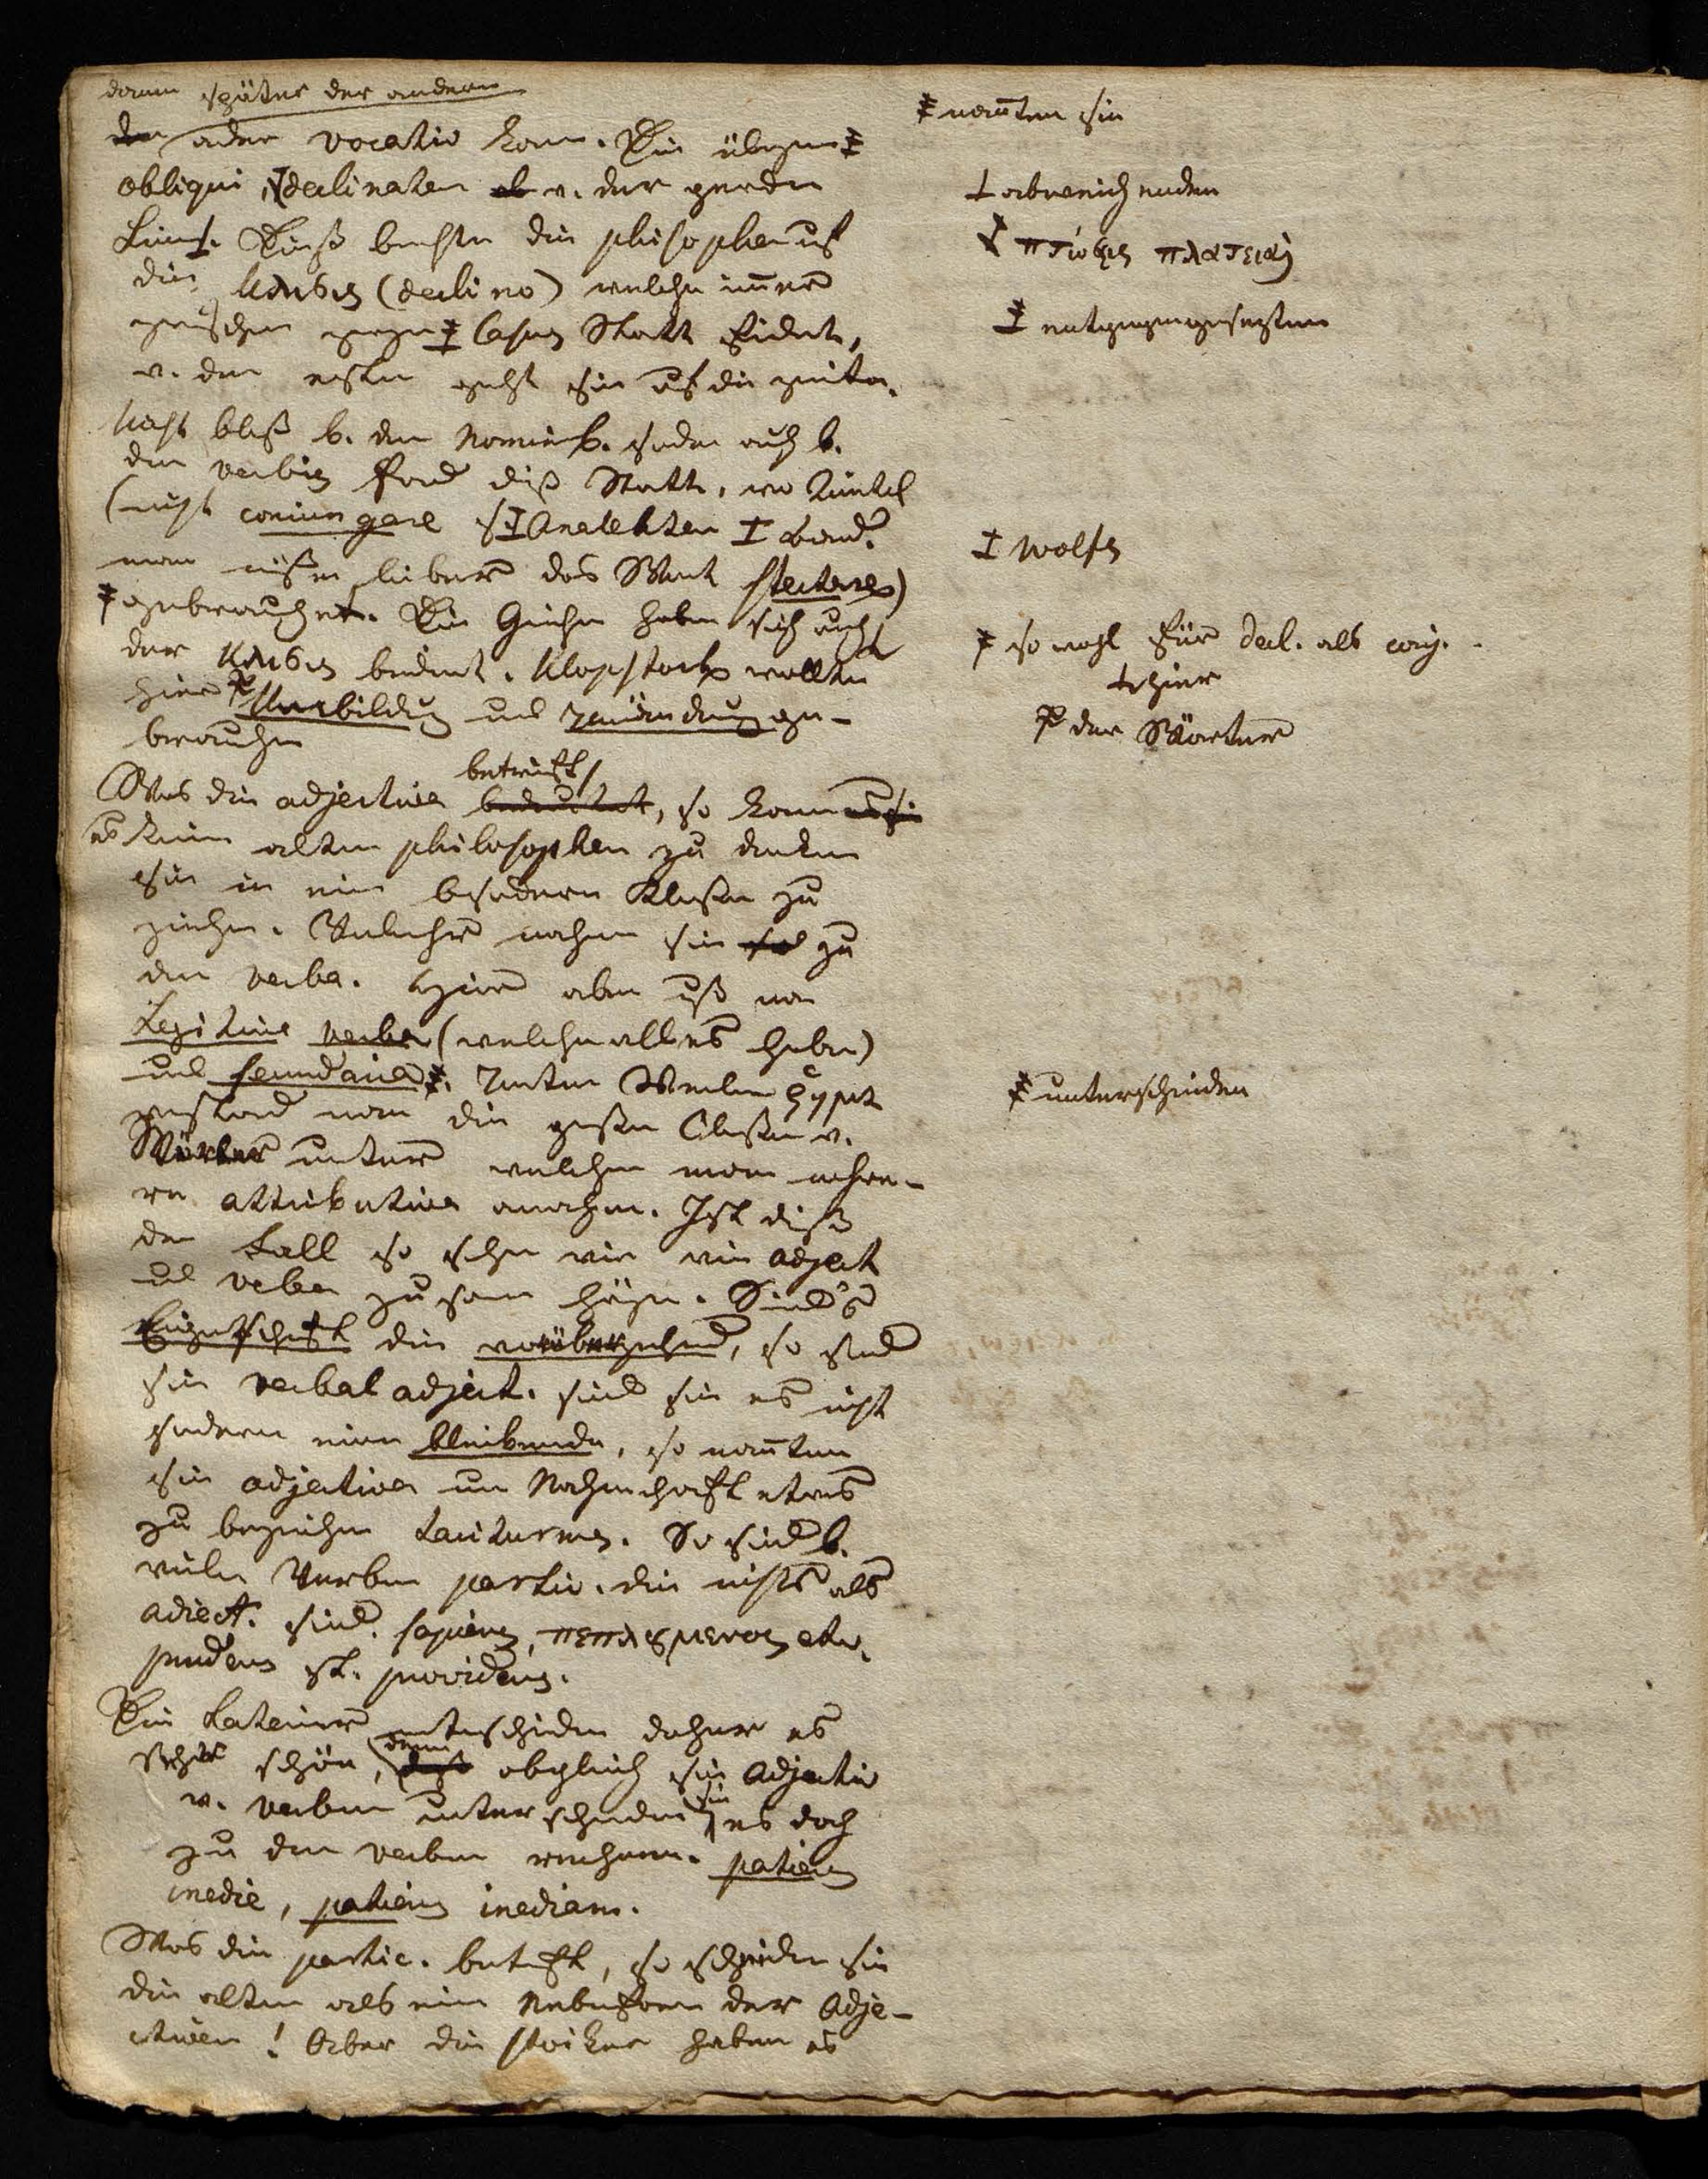 dann später der andere
der oder vocativ kam. Die übrigen ‡
obliqui, declinaten ab v. der geraden
Linie. Dieß brachte die philosophen uf
die κλισις (declino) welche immer
zwischen gegen Casus Statt findet,
v. der ersten geht sie uf die zweite.
Nicht bloß b. den Nomin. sondern auch b.
den verbis fand diß Statt, wo
(nicht coniungare s. Analekten I Band.
man müße lieber das Wort flectere)
gebrauchet. Die Griechen haben sich auch
der κλισις bedient. Klopstock wollte
hier Umbildung und Umändrung ge-
brauchen
betrifft
Was die adjectiva bedeutet, so kam es sie
es keinem alten philosophen zu denken
sie in eine besondere Klasse zu
ziehen. Vielmehr nahmen sie sie zu
den verba. Hier aber muß man
Legitima verba (welche alles haben)
und secundaria ‡. Unter
verstand man die große Classe v.
Wörter unter welchen man mehre-
re attributiva annahm. Ist dieß
der Fall so sehen wir wie adject
ud verba zusamen hängen. Sind's
Eigenschaft die vorübergehend, so sind
sie verbal adject. sind sie es nicht
sondern eine bleibende, so nannten
sie adjectiva um Nahmhaft etwas
zu bezeichnen taciturnus. So sind b.
vielen Verben partic. die nichts als
adiect. sind. sapiens, πεπλεσμενος etc.
prudens st. providens.
Die Lateiner unterschieden daher es
sehr schön, denn daß obgleich sie Adjectiv
v. verben unterschieden sie es doch
zu den verben rechnen. patiens
inedie, patiens inediam.
Was die partic. betrifft, so scheiden sie
die alten als eine Nebenform der Adje-
ctiven! Aber die stoiker haben es
‡ nannten sie
‡ abweichenden
‡ πτώσεις πλατειαι
‡ entgegengesetzten
‡ Wolfs
‡ so wohl für decl. als conj.
‡ hier
‡ der Wörter
‡ unterscheiden